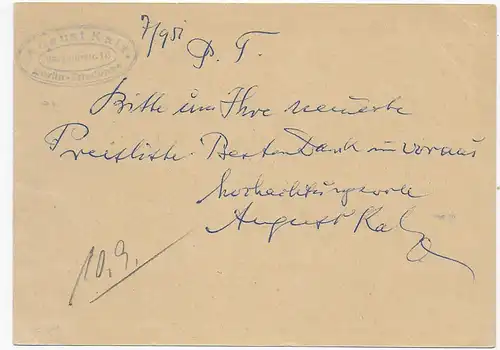 August Kal
7/9 51
P. T.
Bitte um Ihre neueste
Preisliste. Besten Dank im voraus
hochachtungsvoll
August Kal
10.9.